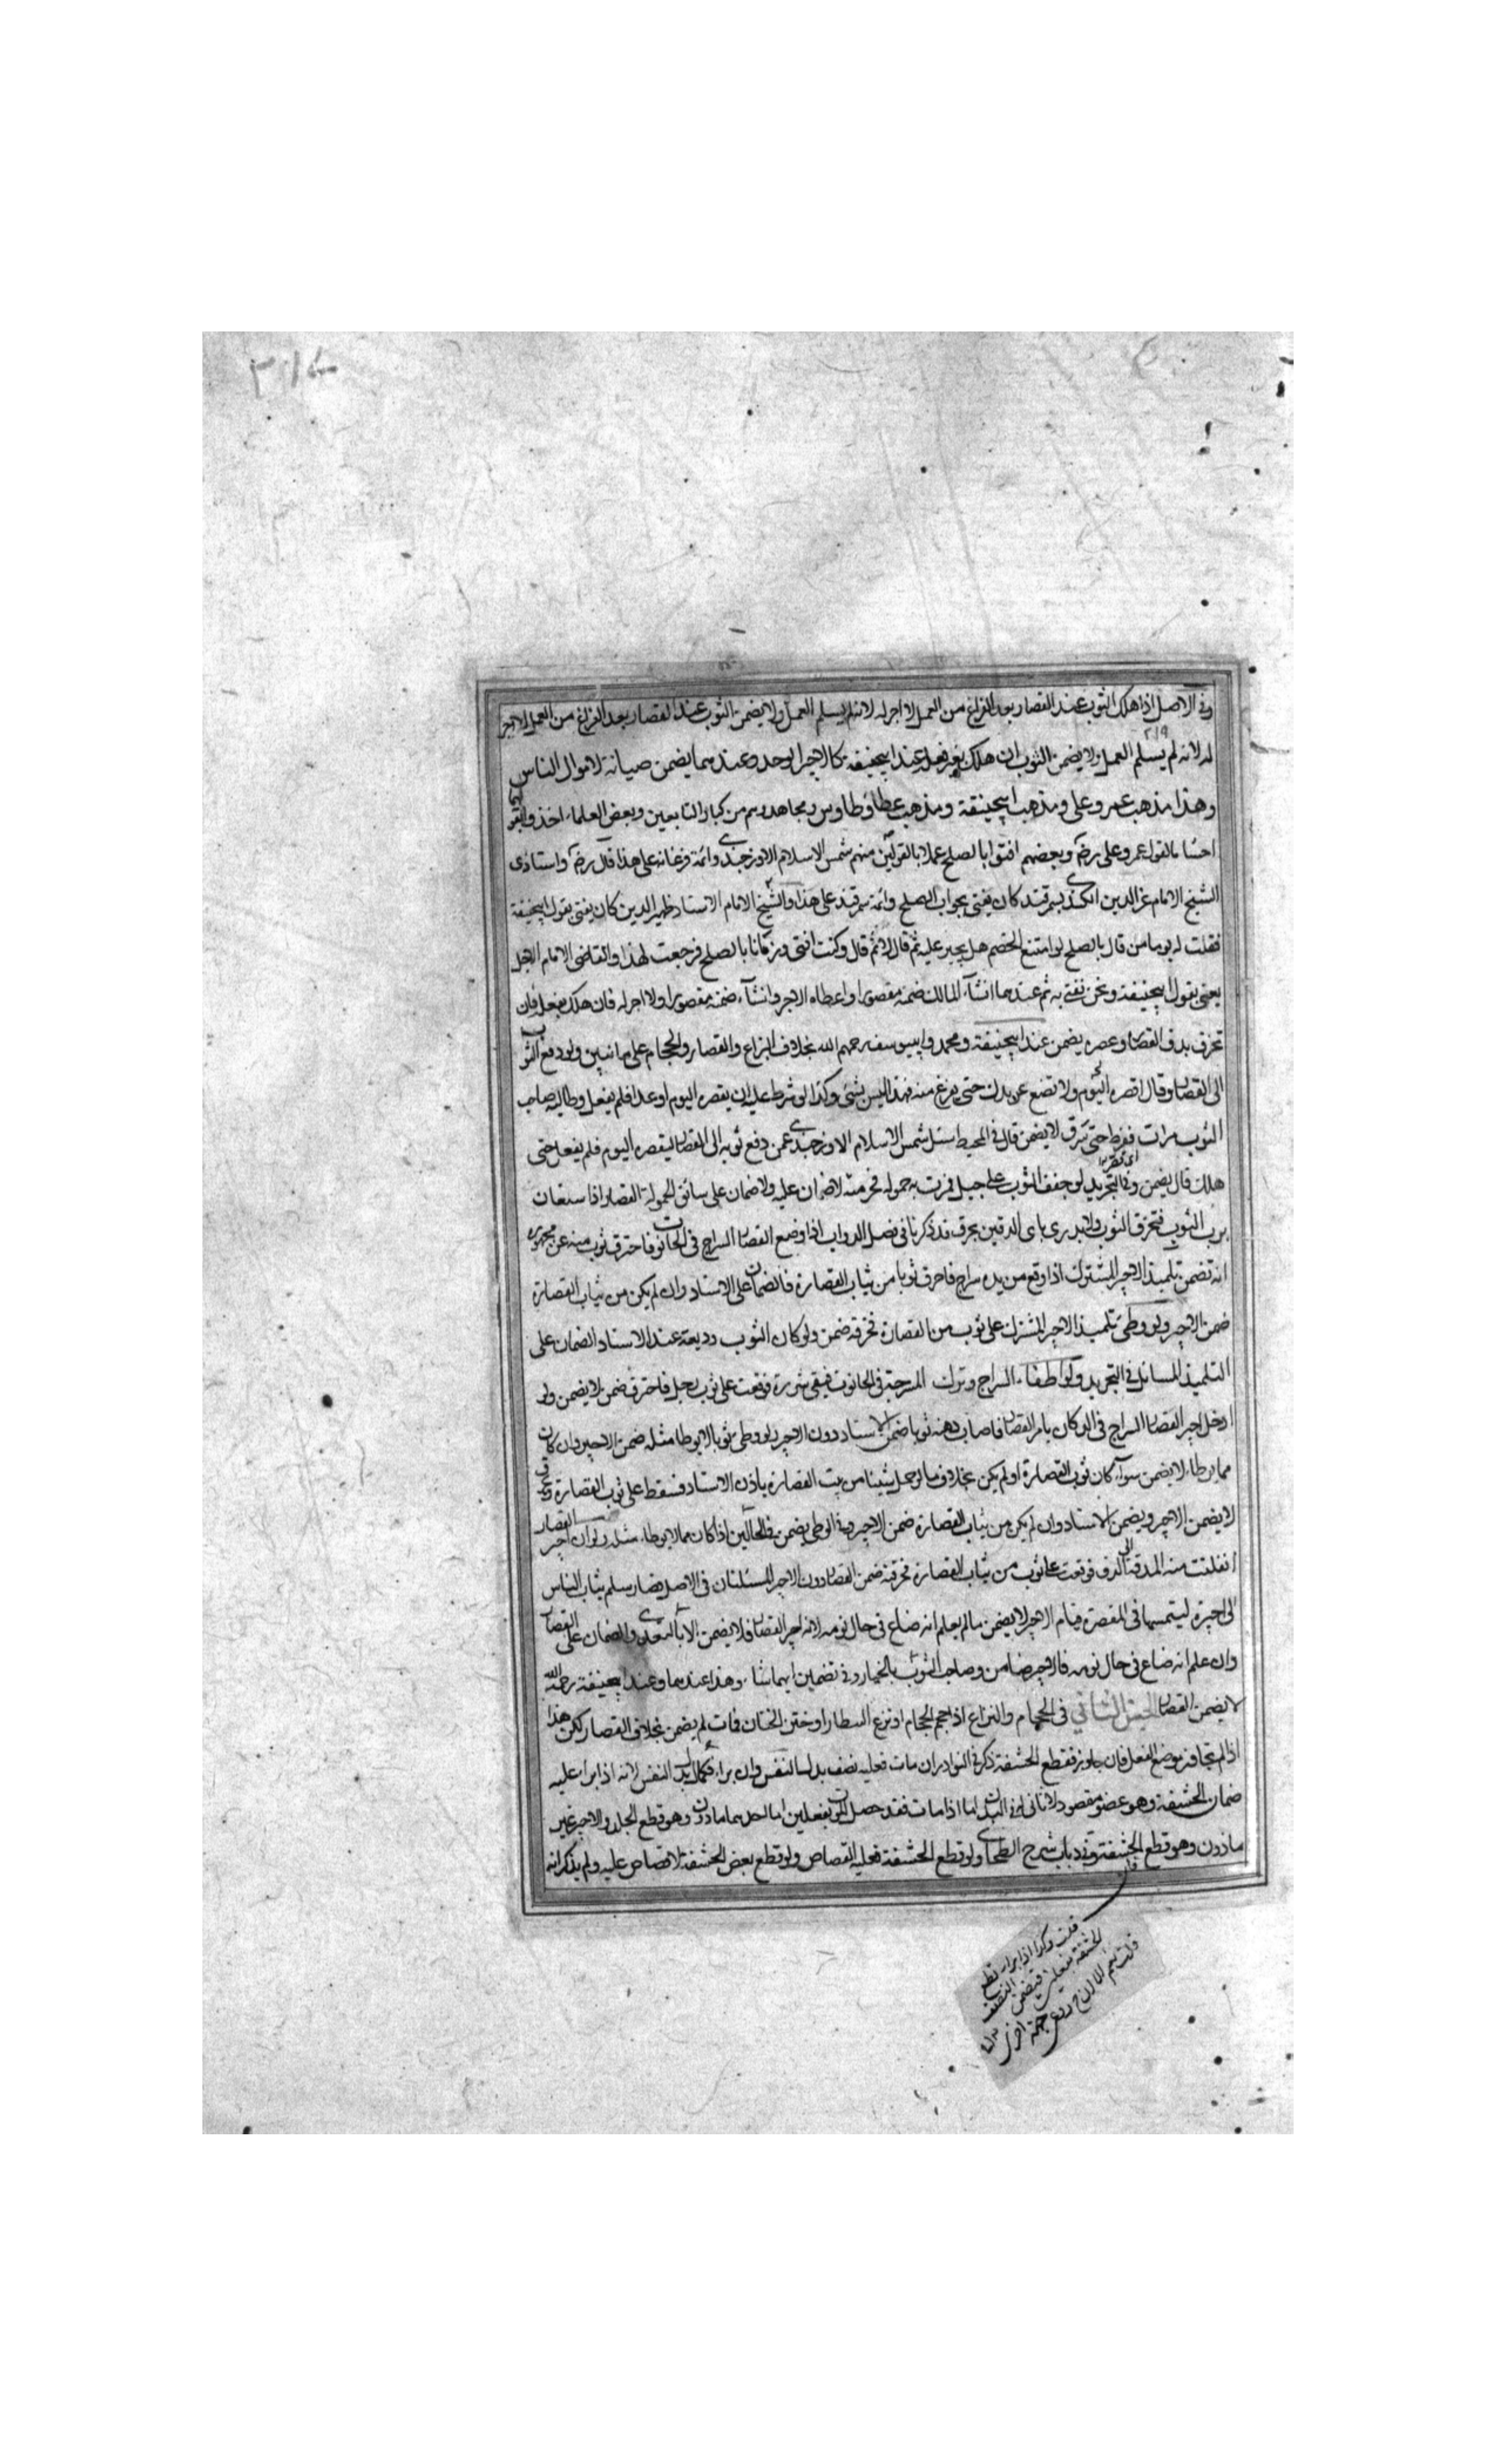 وفي الاصل اذا هلك الثوب عند القصار بعد الفراغ من العمل لا اجر له لانه لم يسلم العمل ولا يضمن الثوب عند القصار بعد الفراغ من العمل لا اجر
له لانه لم يسلم العمل ولا يضمن الثوب ان هلك بغير فعله عند ابيحنيفة كالاجير الوحد وعندهما يضمن صيانة لاموال الناس
وهذا مذهب عمر وعلى ومذهب ابيحنيفة ومذهب عطا وطاوس ومجاهد وهم من كبار التابعين وبعض العلماء اخذوا بقو
بالقول عمر وعلى رضه وبعضهم افتوا بالصلح عملا بالقولين منهم شمس الاسلام الاوزجندى وائمة فرغانه على هذا قال رضه واستاذى
الشيخ الامام عز الدين الكندى بسمرقند كان يفتى بجواب الصلح وائمة سمرقند على هذا والشيخ الامام الاستاد ظهير الدين كان يفتى بقول ابيحنيفة
فقلت له يوما من قال بالصلح لو امتنع الخصم هل يجبر عليه ثم قال لا ثم قال وكنت افتى زمانا بالصلح فرجعت لهذا والقاضى الامام الاجل
يعنى بقول ابيحنيفة ونحن نفتى به ثم عندهما ان شآء المالك ضمنه مقصورا واعطاه الاجر وان شآء ضمنه مقصورا ولا اجر له فان هلك بفعله فان
تخرق بدق القصار وعصره يضمن عند ابيحنيفة ومحمد وابيوسف رحمهم الله بخلاف البزاغ والقصار والحجام على ما نبين ولو دفع الثوب
الى القصار وقال اقصره اليوم ولا تضع عن يدك حتى يفرغ منه فهذا ليس بشئ وكذا لو شرط عليه ان يقصره اليوم او غدا فلم يفعل وطالبه صاحب
الثوب مرات ففرط حتى سرق لا يضمن قال في المحيط سئل شمس الاسلام الاوزجندى عمن دفع ثوبه الى القصار ليقصره اليوم فلم يفعل حتى
هلك قال يضمن وفى التجريد لو جفف الثوب على حبل فمرت به حموله فخرقته لا ضمان عليه ولا ضمان على سائق الحمولة القصار اذا استعان
برب الثوب فتخرق الثوب ولا يدرى باى الدقين يخرق قد ذكرنا فى فصل الدواب اذا وضع القصار السراج فى الحانوت فاحترق ثوب منه عن
انه تضمن تلميذ الاجير المشترك اذا وقع من يده سراج فاحرق ثوبا من ثياب القصارة فالضمان على الاستاد وان لم يكن من ثياب القصارة
ضمن الاجير ولو وطى تلميذ الاجير المشترك على ثوب من القصارة فخرقه ضمن ولو كان الثوب وديعة عند الاستاد الضمان على
التلميذ المسائل فى التجريد ولو اطفاء السراج وترك المسرجة فى الحانوت فبقى شررة فوقعت على ثوب رجل فاحترق ضمن لا يضمن ولو
ادخل اجير القصار السراج فى الدكان بامر القصار فاصاب دهنه ثوبا ضمن الاستاد دون الاجير ولو وطى ثوبا لا يوطا مثله ضمن الاجير وان كان
مما يوطاء لا يضمن سوآء كان ثوب القصارة او لم يكن بخلاف ما لو حمل شيئا من بيت القصارة باذن الاستاد فسقط على ثوب القصارة
لا يضمن الاجير ويضمن الاستاد وان لم يكن من ثياب القصارة ضمن الاجير وفى الوطى يضمن فى الحالين اذا كان مما لا يوطاء مثله ولو ان اجير القصار
انفلتت منه المدقة الى الدق فوقعت على ثوب من ثياب القصارة فخرقته ضمن القصار دون الاجير المسئلتان فى الاصل قصار سلم ثياب الناس
الى اجيره ليشمسها فى المقصرة فنام الاجير لا يضمن مالم يعلم انه ضاع فى حال نومه لانه اجير القصار فلا يضمن الا بالتعدى والضمان على القصار
وان علم انه ضاع فى حال نومه فالاجير ضامن وصاحب الثوب بالخيار فى تضمين ايهما شاء وهذا عندهما وعند ابيحنيفة رحمه الله
لا يضمن القصار الجنس الثانى فى الحجام والبزاغ اذا حجم الحجام او بزغ البيطار او ختن الختان فمات لم يضمن بخلاف القصار لكن هذا
اذا لم يتجاوز موضع الفعل فان جاوز فقطع الحشفة ذكر فى النوادر ان مات فعليه نصف بدل النفس وان براء فكمال بدل النفس لانه اذا براء عليه
ضمان الحشفة وهو عضو مقصود لا ثانى له فى البدن اما اذا مات فقد حصل الموت بفعلين احدهما ماذون وهو قطع الجلد والاخر غير
ماذون وهو قطع الحشفة وفى ديات شرح الطحاوى ولو قطع الحشفة فعليه القصاص ولو قطع بعض الحشفة لا قصاص عليه ولم يذكر انه